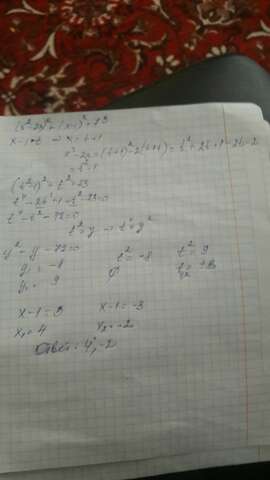 (x²-2x)²+(x-1)²=73
x-1=t ⇒ x=t+1
x²-2x=(t+1)²-2(t+1)=t²+2t+1-2t-2
=t²-1
(t²-1)²+t²=73
t⁴-2t²+1+t²-73=0
t⁴-t²-72=0
t²=y → t⁴=y²
y²-y-72=0
y₁=-8
y₂=9
t²=-8
∅
t²=9
t=±3
x-1=3 x-1=-3
x₁=4 x₂=-2
Ответ: 4; -2